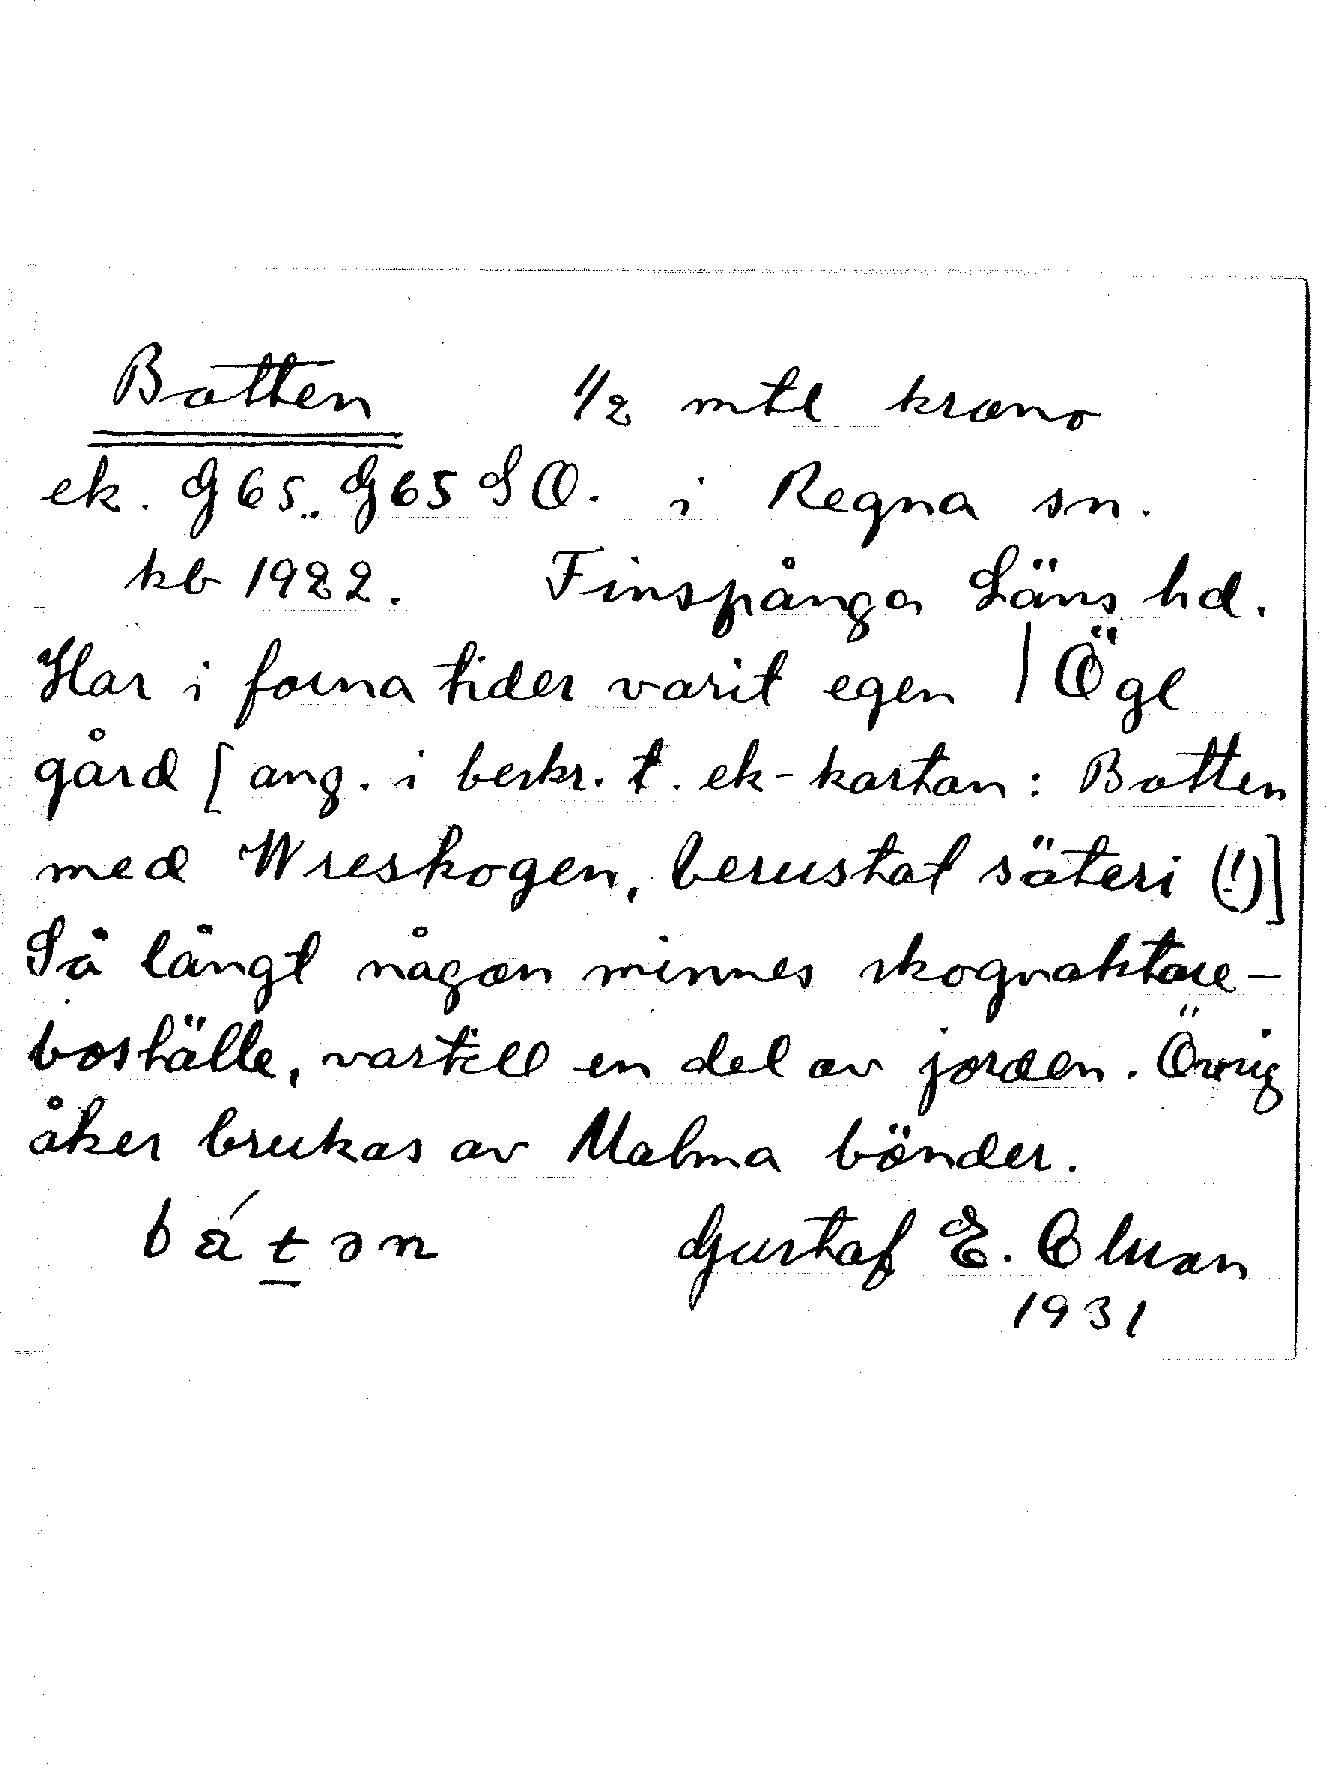 Botten 1/2 mtl krono
ek. G65. G65 SO. i Regna sn.
kb 1922. Finspånga Läns hd.
Har i forna tider varit egen | Ögl
gård [ang. i beskr. t. ek-kartan: Botten
med Wreskogen, berustat säteri (!)]
Så långt någon minnes skogvaktare-
boställe, vartill en del av jorden. Övrig
åker brukas av Malma bönder.
bátən Gustaf E. Olsson
1931